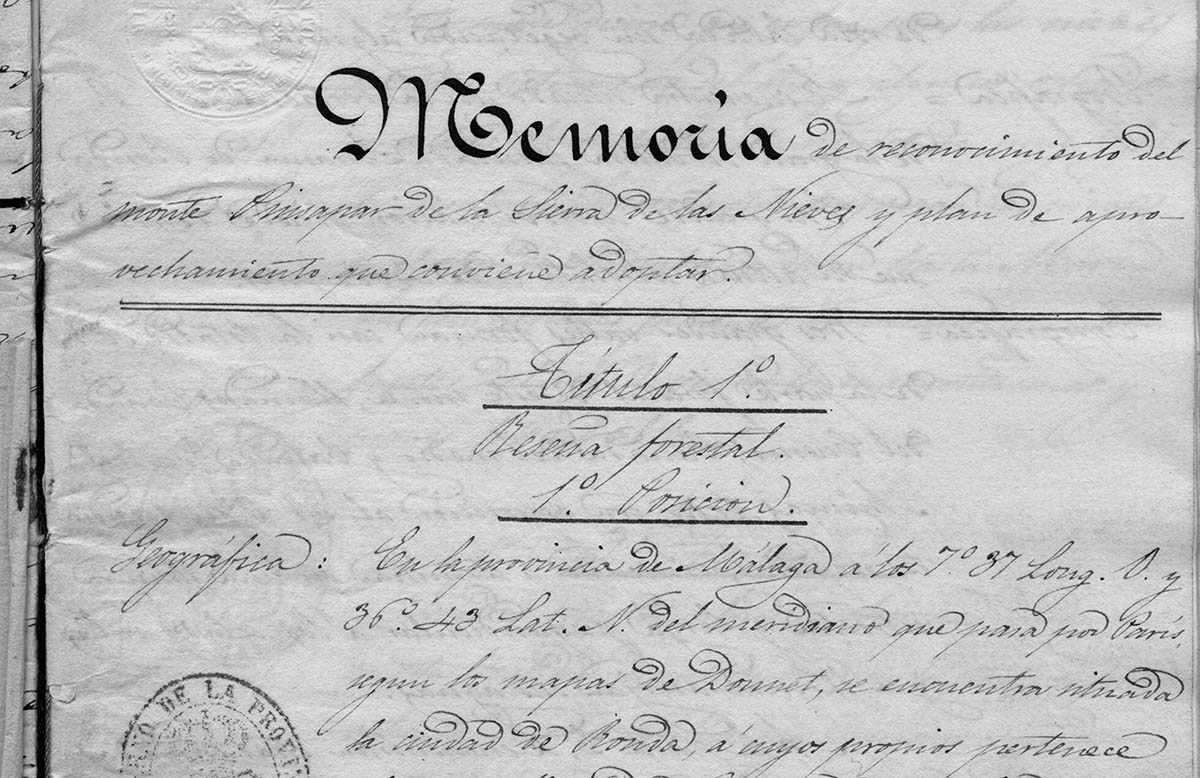 Memoria de reconocimiento del
monte Pinsapar de la Sierra de las Nieves y plan de apro-
vechamiento que conviene adoptar.
Título 1º
Reseña forestal.
1º. Posicion.
Geográfica: En la provincia de Málaga á los 7º. 37 Long. O. y
36º. 43 Lat. N. del meridiano que pasa por París,
segun los mapas de Dounet, se encuentra situada
la ciudad de Ronda, á cuyos propios pertenece
NO DE LA PROVIN